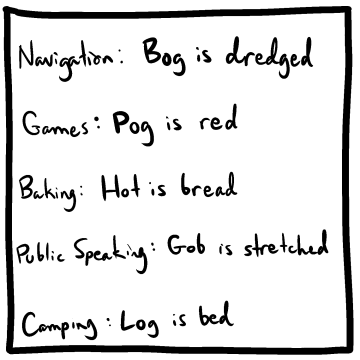 Navigation: Bog is dredged
Games: Pog is red
Baking: Hot is bread
Public Speaking: Gob is stretched
Camping: Log is bed